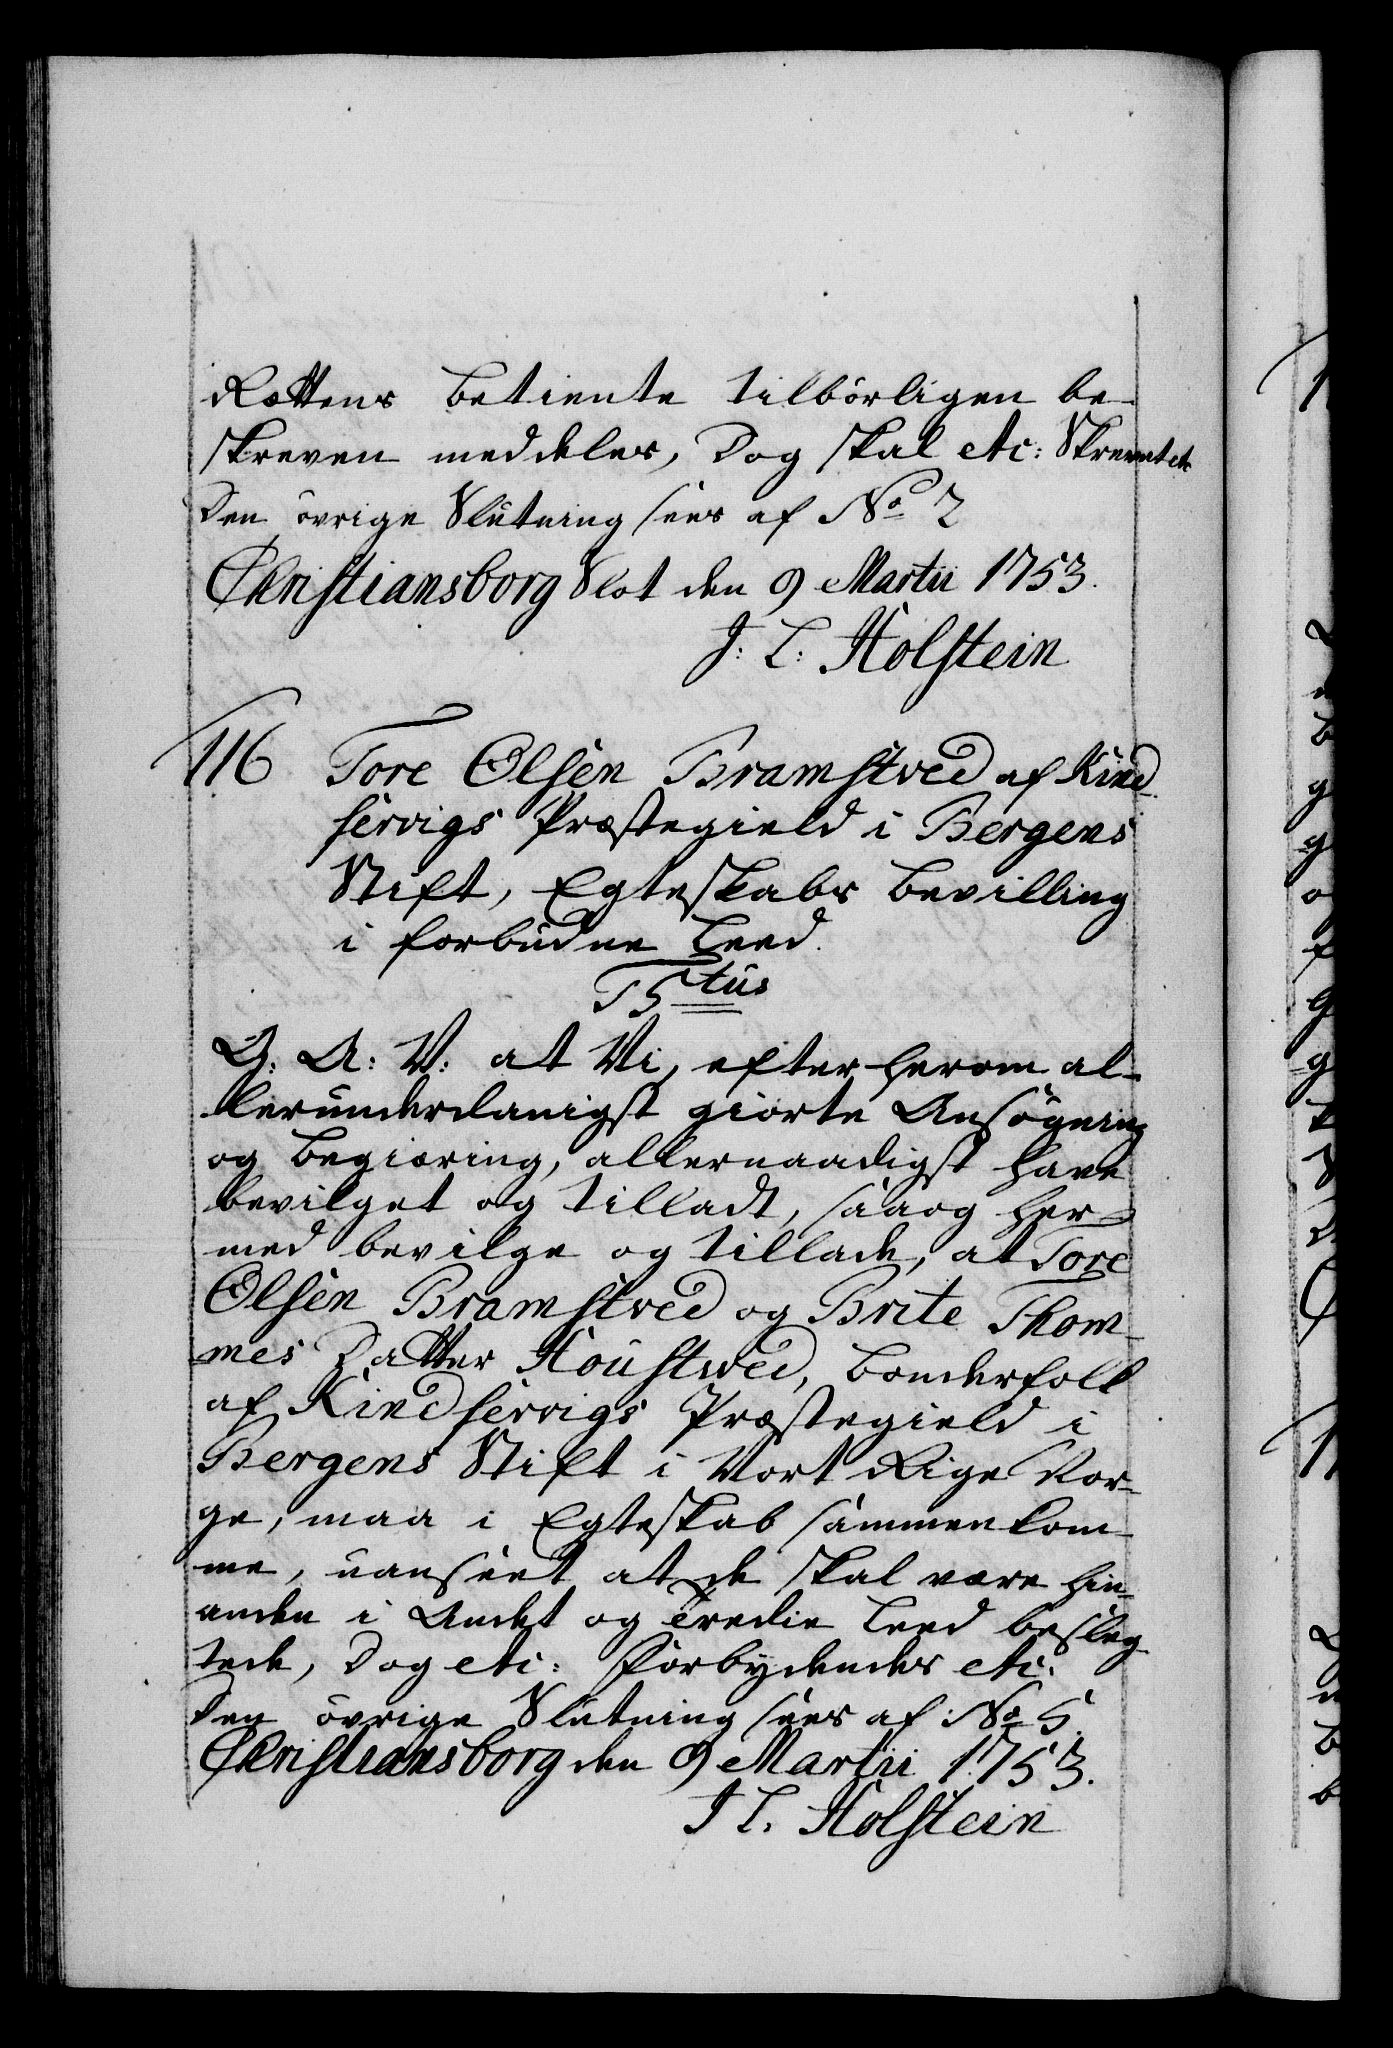 Rættens betiente tilbörligen be-
skreven meddeles, Dog skal etc: Skrevet etc
Den övrige Slutning sees af No 2
Christiansborg Slot den 9 Martii 1753.
J: L: Holstein
116 Tore Olsen Bramstved af Kind-
servigs Præstegield i Bergens
Stift, Egteskabs bevilling
i forbudne Leed.
G: A: V: at Vi, efter herom al-
lerunderdanigst giorte Ansögning
og begiæring, allernaadigst have
bevilget og tilladt, saa og her-
med bevilge og tillade, at Tore
Olsen Bramstved og Brite Thom-
mes Datter Houstved, bonderfolk
af Kindservigs Præstegield i
Bergens Stift i Vort Rige Nor-
ge, maa i Egteskab sammenkom-
me, uanseet at de skal være hin-
anden i Andet og Tredie Leed beslæg-
tede, Dog etc: Forbydendes etc:
Den övrige Slutning sees af No 5.
Christiansborg den 9 Martii 1753.
J L. Holstein